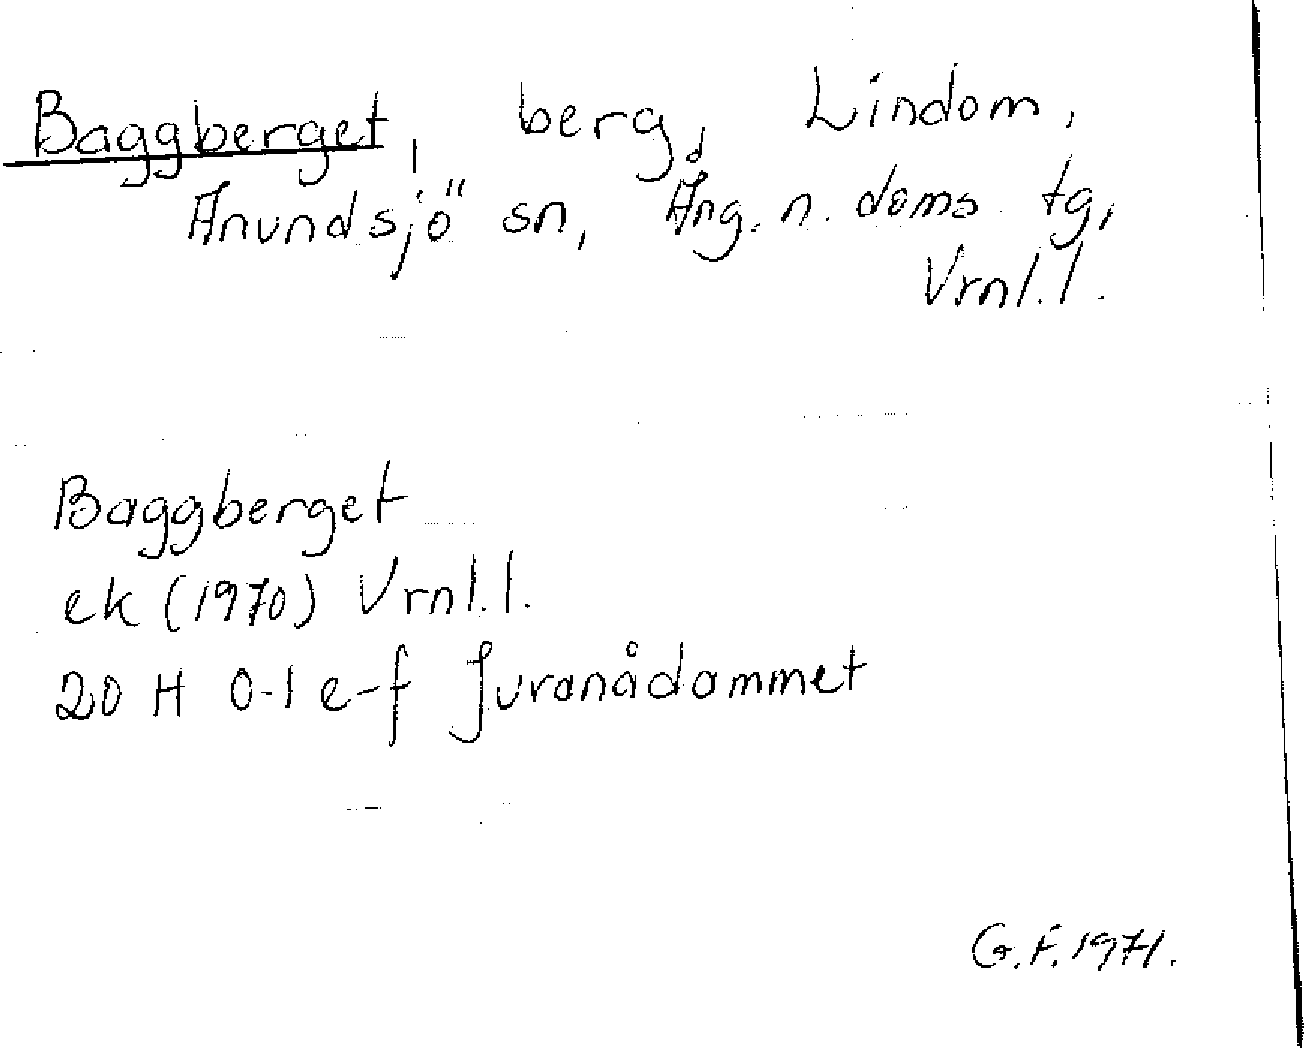 Baggberget, berg, Lindom,
Anundsjö sn, Ång. n. doms tg,
Vrnl.l.
Baggberget
ek (1970) Vrnl.l.
20 H 0-1 e-f Juvanådammet
G.F. 1971.